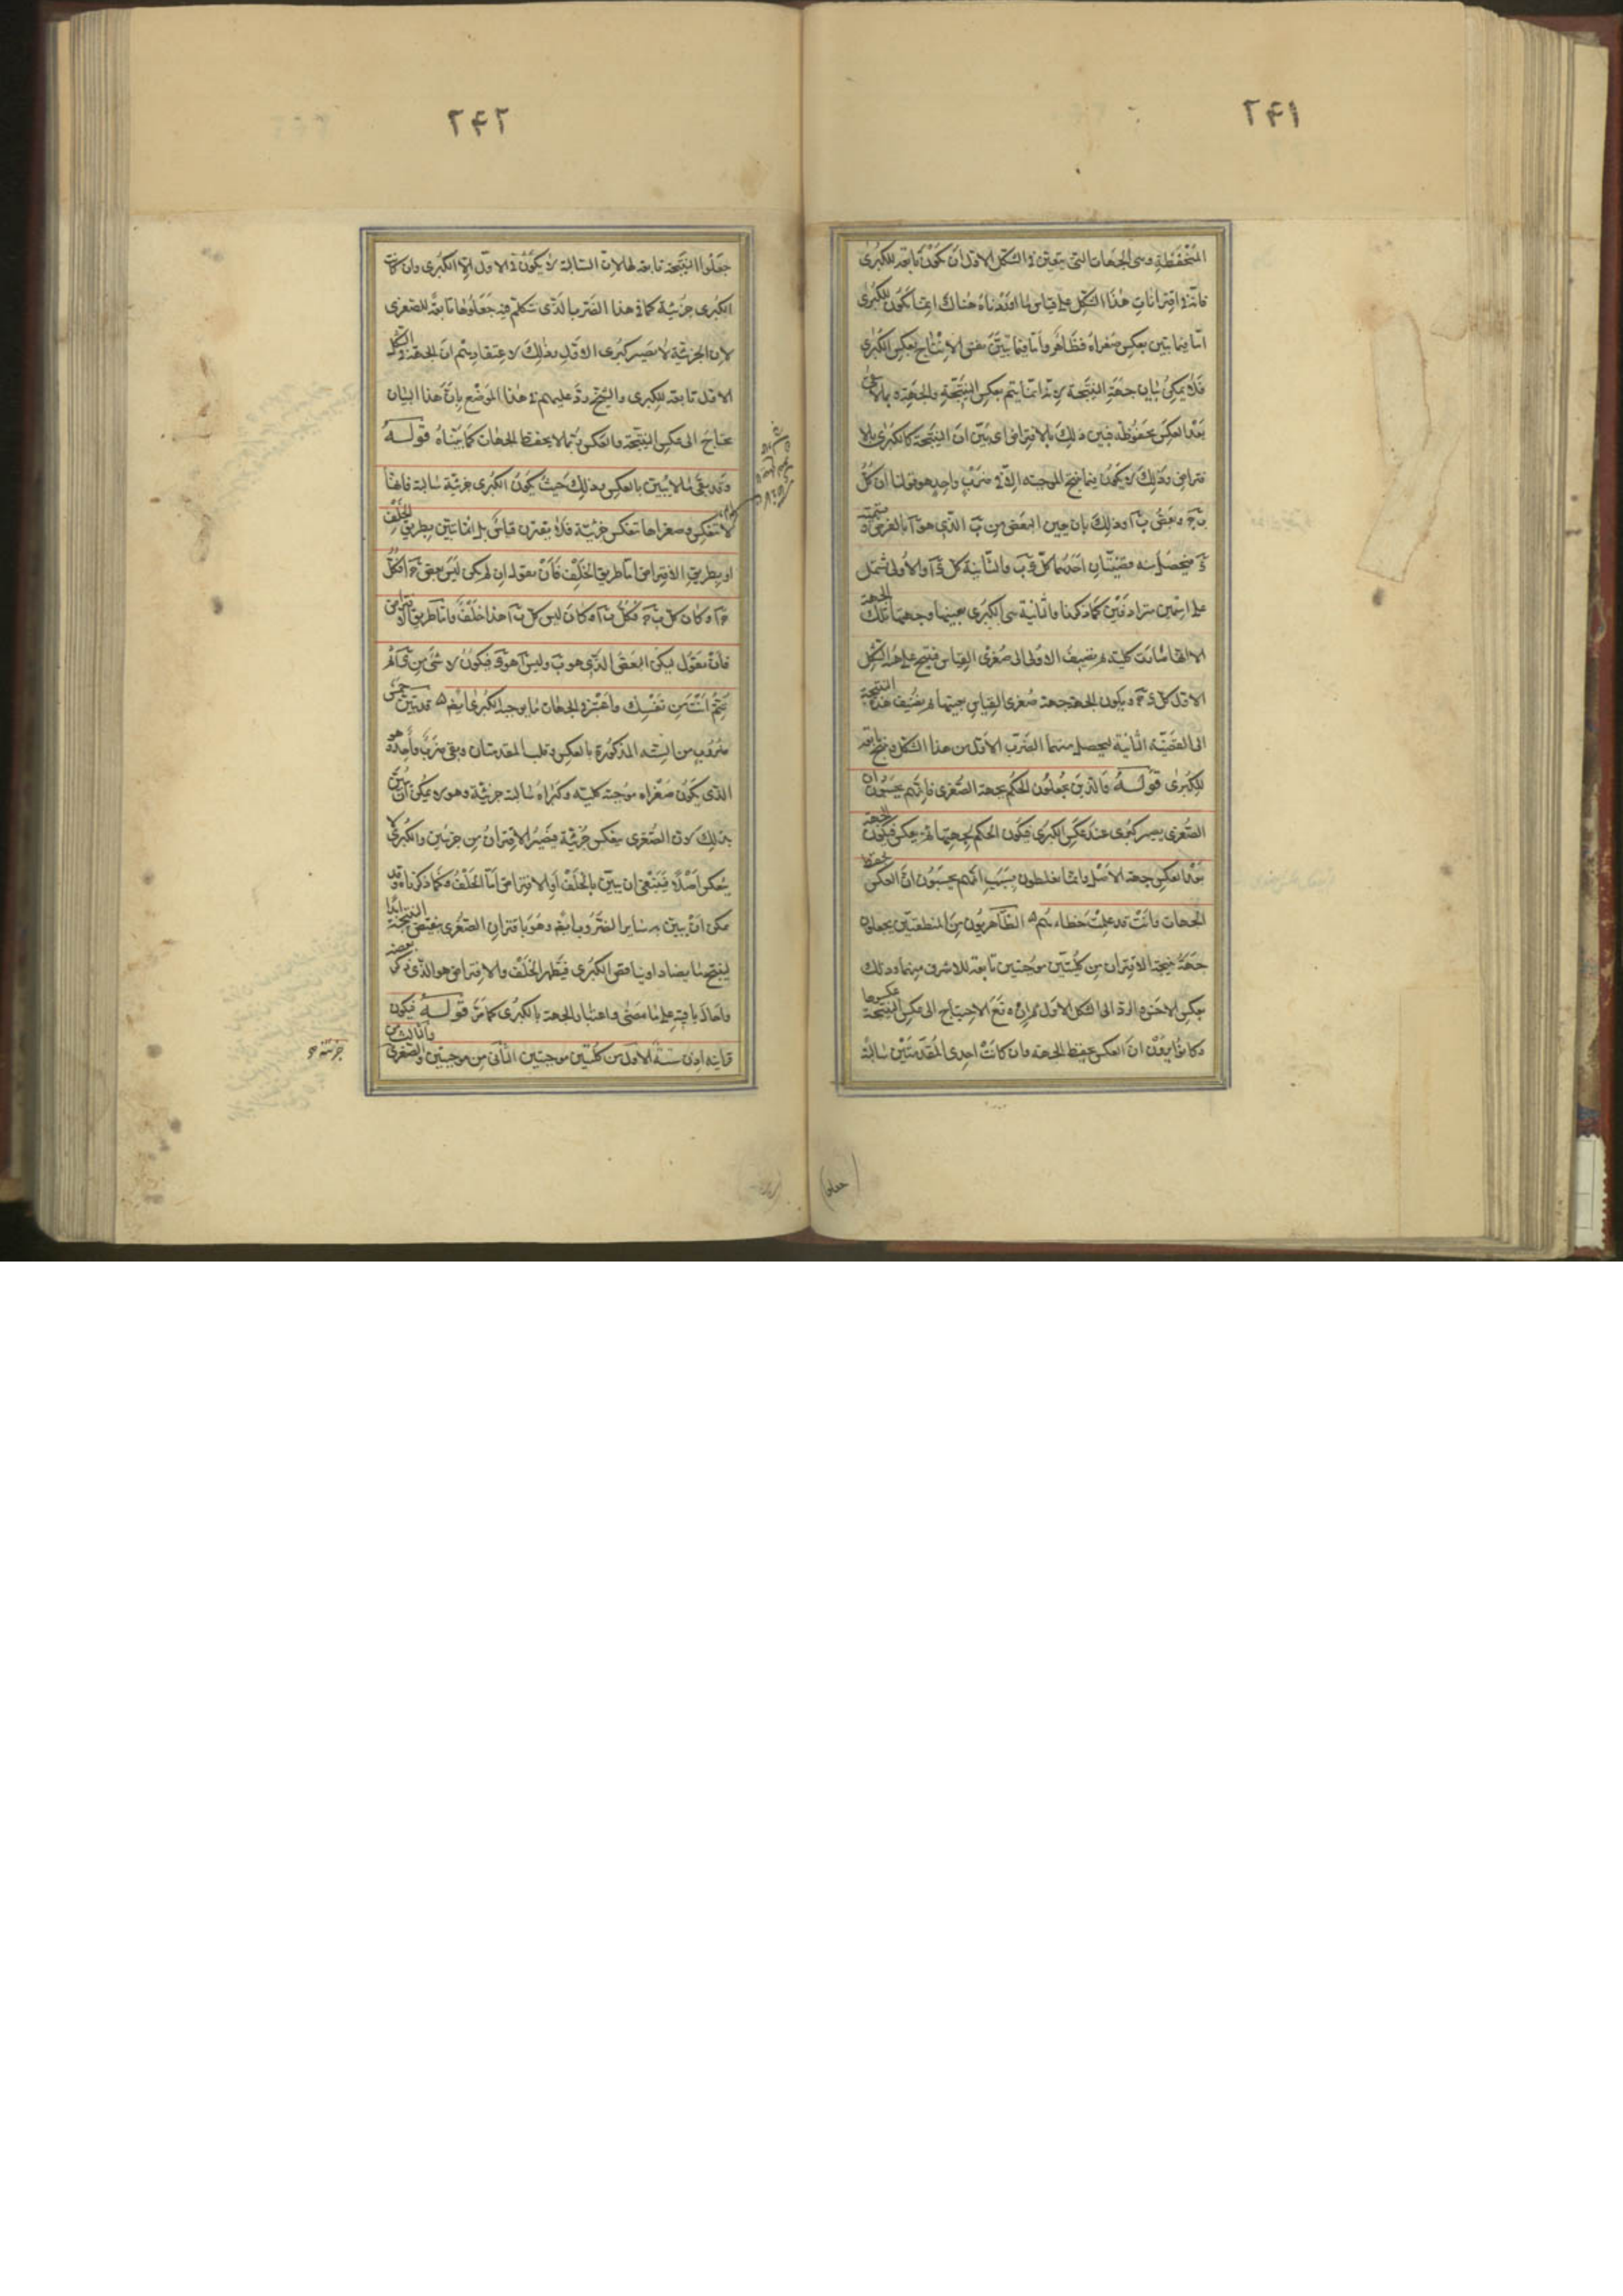 ۲۴۱
المنحفظة وهى الجهات التى يتعين فى الشكل الاول ان يكون تابعة للكبرى
فانه فى اقترانات هذا الشكل على قياس ما اوردناه هناك انما يكون للكبرى
اما فيما يتبين بعكس صغراه فظاهر واما فيما تبين نفس الانتاج بعكس الكبرى
فلا يمكن بيان جهة النتيجة لانه انما يتم بعكس النتيجة والجهة
بعد العكس محفوظة فبين ذلك بالافتراض اى بين ان النتيجة كالكبرى بالا
فتراض وذلك لا يكون فيما ينتج الموجبة الا فى ضرب واحد هو قولنا ان كل
ب ج وبعض ب ا وذلك بان يعين البعض من ب الذى هو ا بالفرض
د فيحصل منه قضيتان احدهما كل د ب والثانية كل د ا والاولى تشتمل
على اسمين مترادفين كما ذكرنا والثانية هى الكبرى بعينها وجهتها تلك الجهة
الا انها صارت كلية ثم نضيف الاولى الى صغرى القياس فينتج على هيئة الشكل
الاول كل د ج ويكون الجهة جهة صغرى القياس بعينها ثم نضيف هذه النتيجة
الى القضية الثانية ليحصل منهما الضرب الاول من هذا الشكل وينتج تابعة
للكبرى قوله والذين يجعلون الحكم لجهة الصغرى فانهم يحسبون ان
الصغرى يصير كبرى عند عكس الكبرى فيكون الحكم لجهتها ثم يعكس فيكون الجهة
بعد العكس جهة الاصل وانما يغلطون بسبب انهم يحسبون ان العكس يحفظ
الجهات وانت قد علمت خطاءهم الظاهريون من المنطقيين يجعلون
جهة نتيجة الاقتران من كليتين موجبتين تابعة للاشرف منهما وذلك
بعكس الاخرى والرد الى الشكل الاول مع الاحتياج الى عكس النتيجة
وكانوا يعدون ان العكس يحفظ الجهة وان كانت احدى المقدمتين سالبة
۲۴۲
جعلوا النتيجة تابعة لها لان السالبة لا يكون فى الاول الا الكبرى وان كانت
الكبرى جزئية كما فى هذا الضرب الذى نتكلم فيه جعلوها تابعة للصغرى
لان الجزئية لا تصير كبرى الاول وذلك لاعتقادهم ان الجهة فى الشكل
الاول تابعة للكبرى والشيخ رد عليهم فى هذا الموضع بان هذا البيان
يحتاج الى عكس النتيجة والعكس ربما لا يحفظ الجهات كما بيناه قوله
وقد بقى ما لا يبين بالعكس وذلك حيث يكون الكبرى جزئية سالبة فانها
لا تنعكس وصغراها تنعكس جزئية فلا يقترن قياس بل انما تبين بطريق الخلف
او بطريق الافتراض اما طريق الخلف فان نقول ان لم يكن ليس بعض ج ا فكل
ج ا وكان كل ب ج فكل ب ا وكان ليس كل ب ا هذا خلف واما طريق الافتراض
فان نقول ليكن البعض الذى هو ب وليس ا هو د فيكون لا شئ من د ا ثم
تتم انت من نفسك واعتبر فى الجهات ما يوجبه الكبرى ايضا قد تبين خمس
ضروب من الستة المذكورة بالعكس وقلب المقدمتان وبقى ضرب واحد هو
الذى يكون صغراه موجبة كلية وكبراه سالبة جزئية وهو لا يمكن ان يبين
بذلك لان الصغرى ينعكس جزئية فيصير الاقتران من جزئيين والكبرى لا
ينعكس اصلا فينبغى ان يبين بالخلف او بالافتراض اما الخلف فكما ذكرناه وقد
يمكن ان يبين به سائر الضروب ايضا وهو باقتران الصغرى بنقيض النتيجة ابدا
لينتج ما يضاد او يناقض الكبرى فيظهر الخلف والافتراض هو الذى ذكر بعضه
واحال باقيه على ما مضى واعتبار الجهة بالكبرى كما مر قوله فيكون
قراينه اذن ستة الاول من كليتين موجبتين الثانى من موجبتين والصغرى والثالث من
جزئية